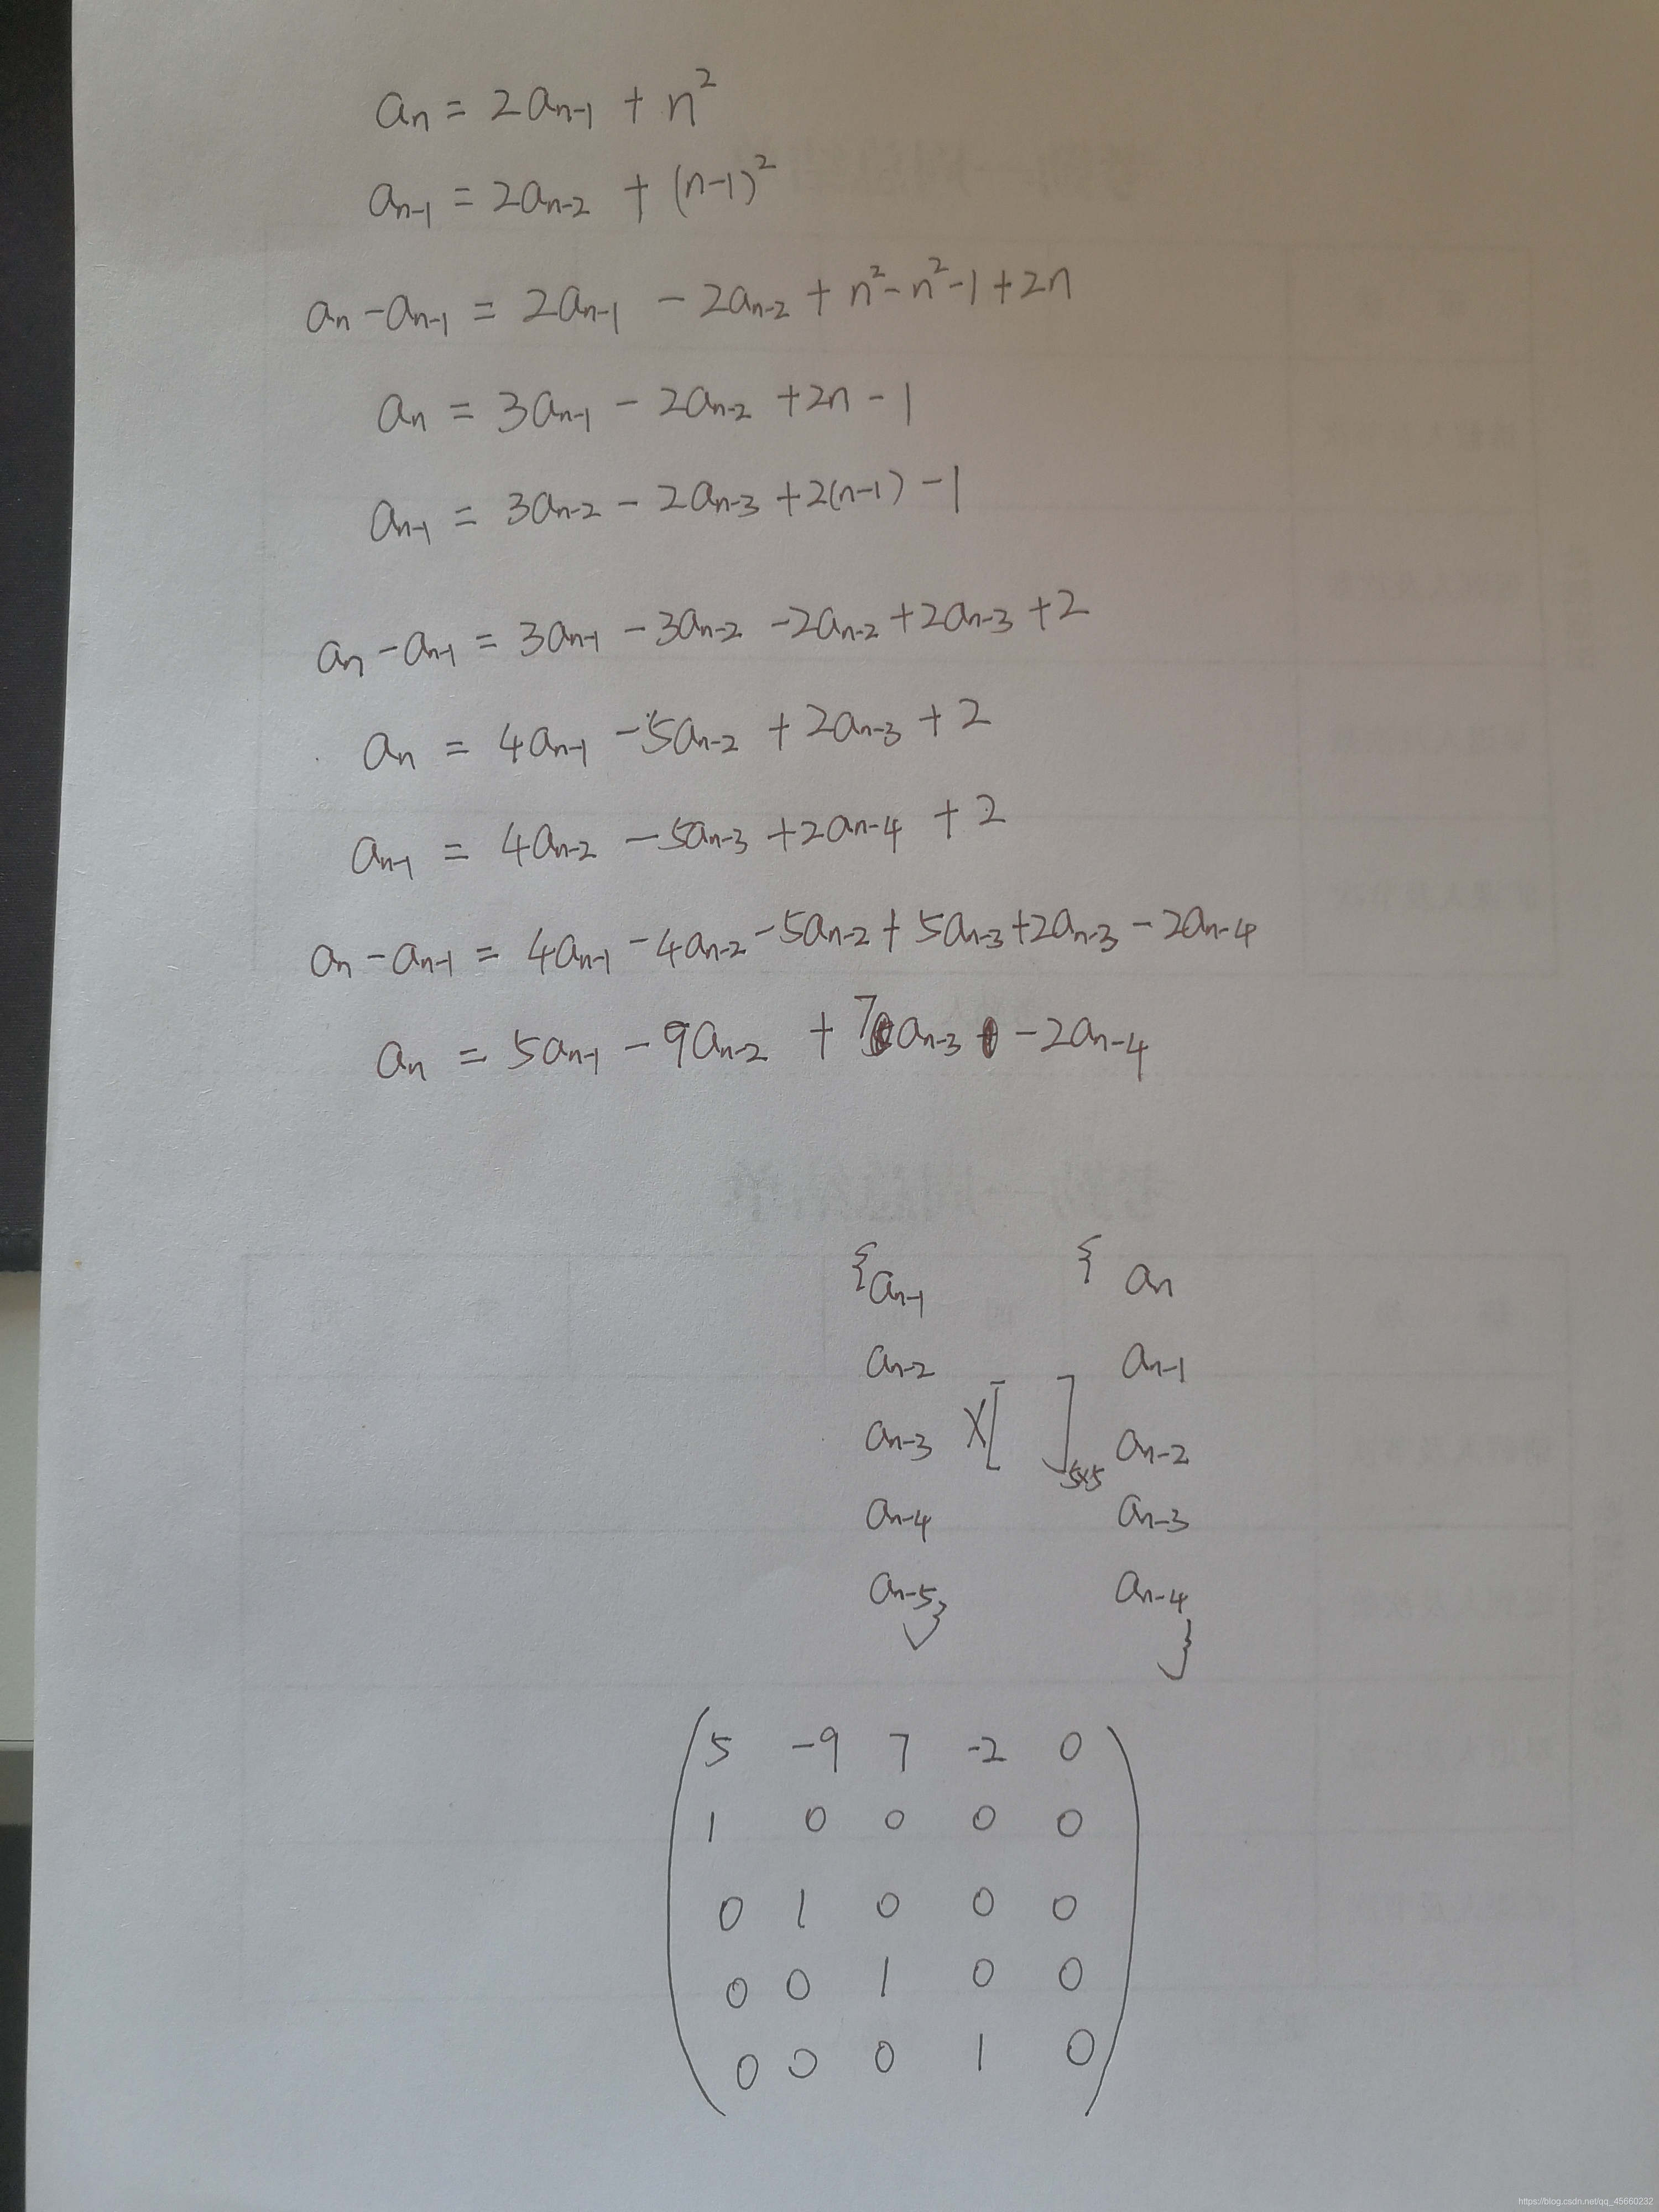 aₙ = 2aₙ₋₁ + n²
aₙ₋₁ = 2aₙ₋₂ + (n-1)²
aₙ - aₙ₋₁ = 2aₙ₋₁ - 2aₙ₋₂ + n² - n² - 1 + 2n
aₙ = 3aₙ₋₁ - 2aₙ₋₂ + 2n - 1
aₙ₋₁ = 3aₙ₋₂ - 2aₙ₋₃ + 2(n-1) - 1
aₙ - aₙ₋₁ = 3aₙ₋₁ - 3aₙ₋₂ - 2aₙ₋₂ + 2aₙ₋₃ + 2
aₙ = 4aₙ₋₁ - 5aₙ₋₂ + 2aₙ₋₃ + 2
aₙ₋₁ = 4aₙ₋₂ - 5aₙ₋₃ + 2aₙ₋₄ + 2
aₙ - aₙ₋₁ = 4aₙ₋₁ - 4aₙ₋₂ - 5aₙ₋₂ + 5aₙ₋₃ + 2aₙ₋₃ - 2aₙ₋₄
aₙ = 5aₙ₋₁ - 9aₙ₋₂ + 7aₙ₋₃ - 2aₙ₋₄
{ aₙ₋₁ { aₙ
aₙ₋₂ aₙ₋₁
aₙ₋₃ × [ ]₅ₓ₅ aₙ₋₂
aₙ₋₄ aₙ₋₃
aₙ₋₅ } aₙ₋₄ }
5 -9 7 -2 0
1 0 0 0 0
0 1 0 0 0
0 0 1 0 0
0 0 0 1 0
https://blog.csdn.net/qq_45660232